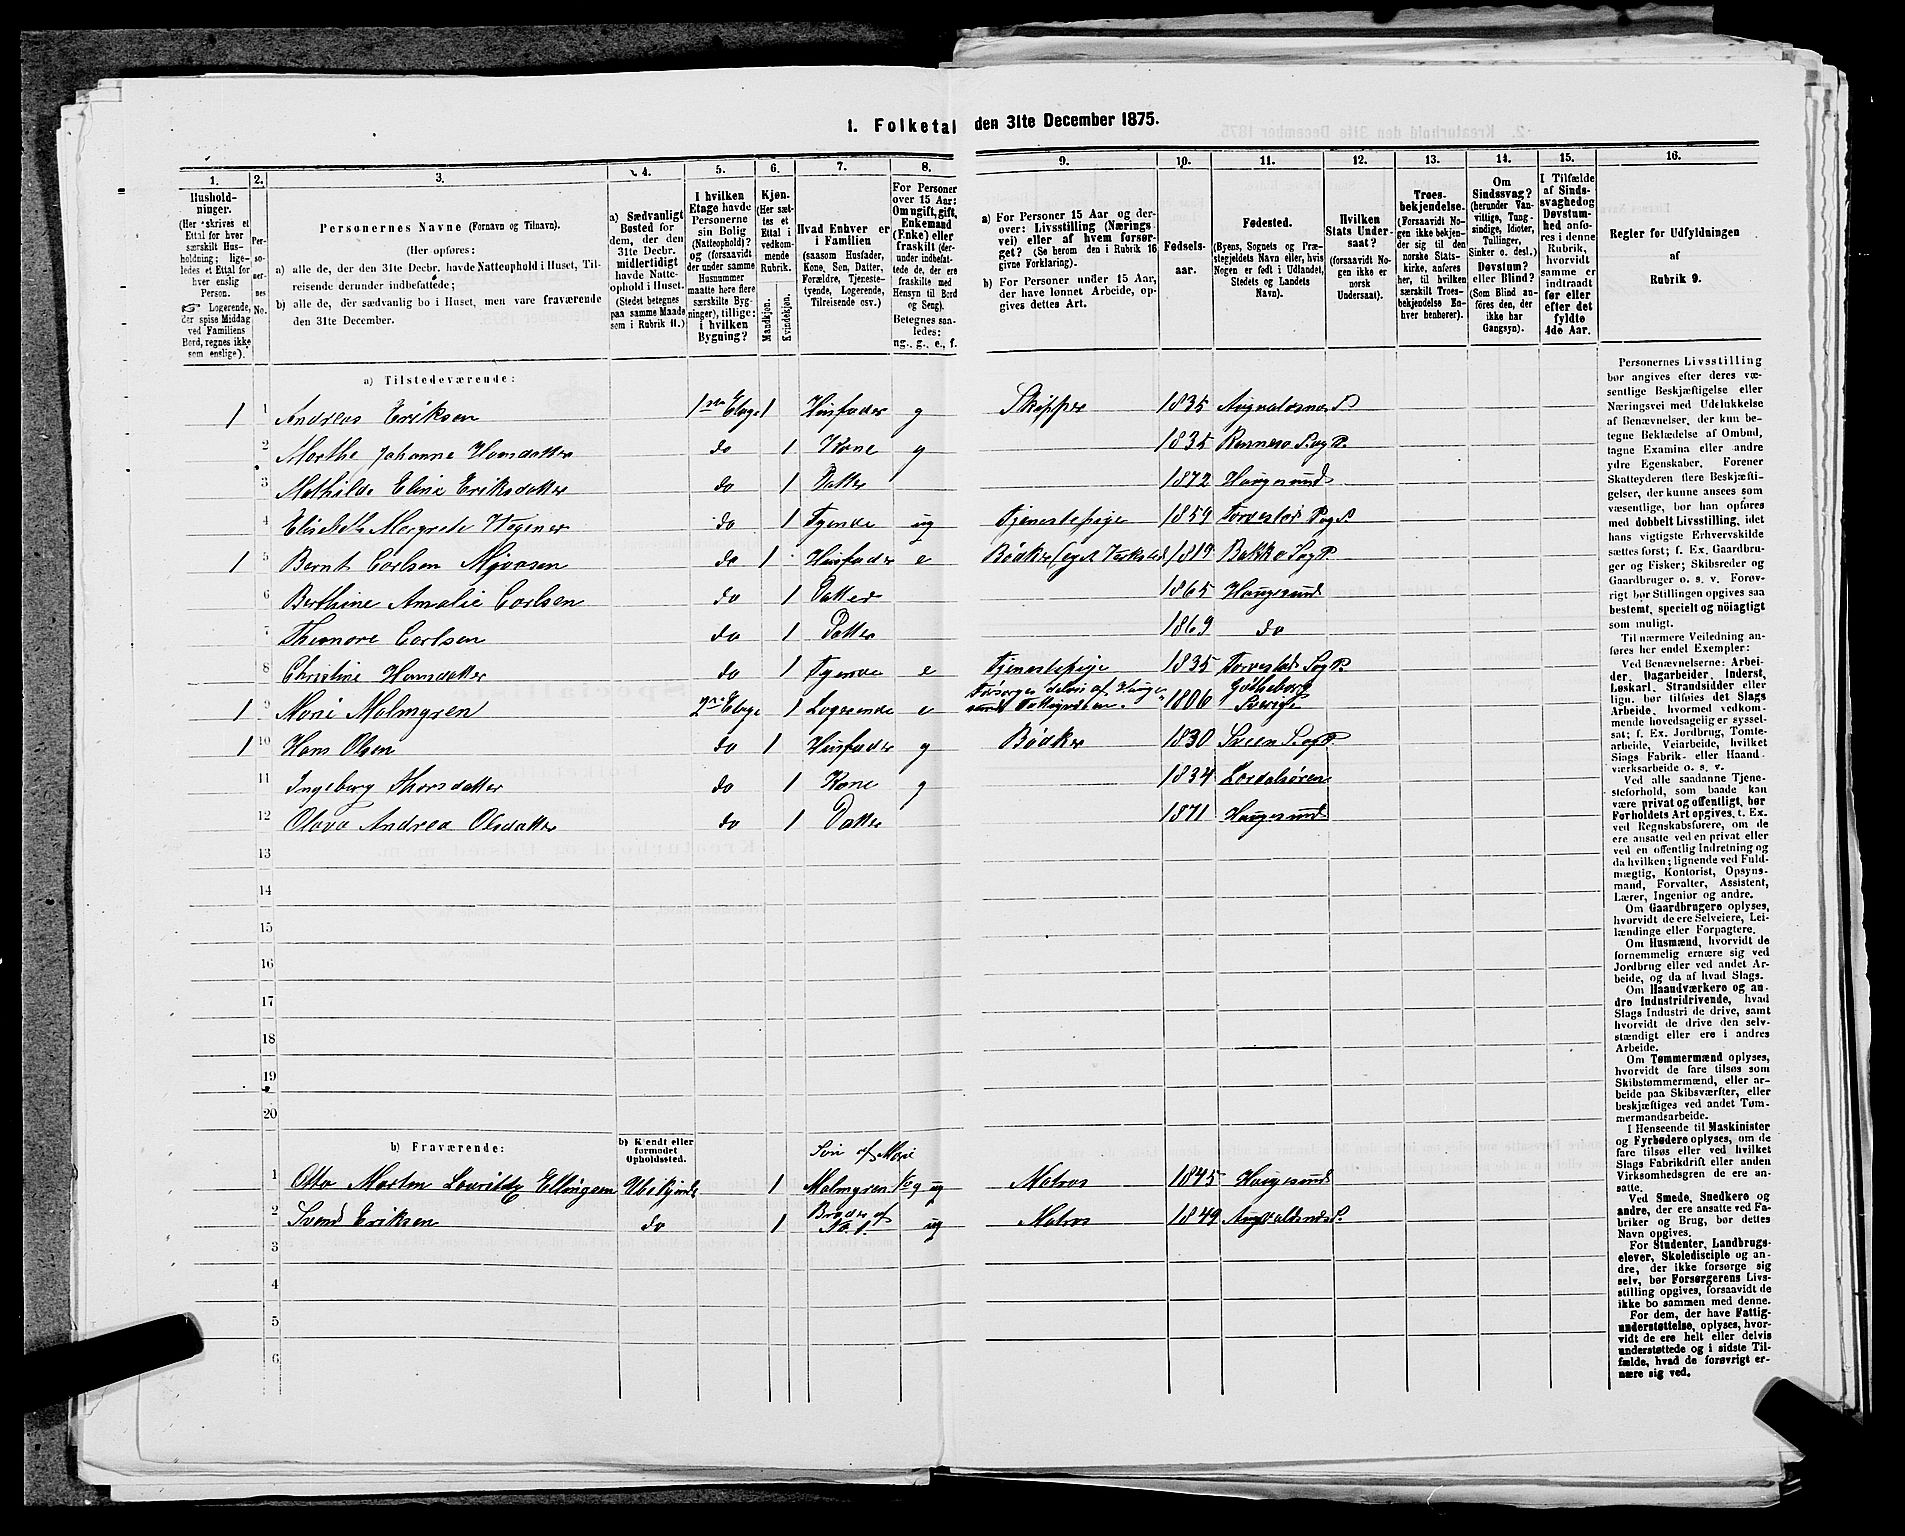 1. Folketal den 31te December 1875.
1. 2. 3. 4. 5. 6. 7. 8. 9. 10. 11. 12. 13. 14. 15. 16.
Hushold-
ninger.
(Her skrives et
Ettal for hver
særskilt Hus-
holdning; lige-
ledes et Ettal for
hver enslig
Person.
Logerende,
der spise Middag
ved Familiens
Bord, regnes ikke
som enslige).
Per-
so-
ner-
nes
No.
Personernes Navne (Fornavn og Tilnavn).
(Her opføres:
a) alle de, der den 31te Decbr. havde Natteophold i Huset, Til-
reisende derunder indbefattede;
b) alle de, der sædvanlig bo i Huset, men vare fraværende
den 31te December.
a) Sædvanligt
Bosted for
dem, der den
31te Decbr.
midlertidigt
havde Natte-
ophold i Huset.
(Stedet betegnes
paa samme Maade
som i Rubrik 11.)
I hvilken
Etage havde
Personerne
sin Bolig
(Natteophold)?
og (forsaavidt
der under samme
Husnummer
maatte høre flere
særskilte Byg-
ninger), tillige:
i hvilken
Bygning?
Kjøn.
(Her sæt-
tes et
Ettal i
vedkom-
mende
Rubrik.
Mandkjøn.
Kvindekjøn.
Hvad Enhver er
i Familien
(saasom Husfader,
Kone, Søn, Datter,
Forældre, Tjeneste-
tyende, Logerende,
Tilreisende osv.)
For Personer
over 15 Aar:
Om ugift, gift,
Enkemand
(Enke) eller
fraskilt (der-
under indbefat-
tede, de ere
fraskilte med
Hensyn til Bord
og Seng).
Betegnes saa-
ledes:
ug., g., e., f.
a) For Personer 15 Aar og der-
over: Livsstilling (Nærings-
vei) eller af hvem forsør-
get? (Se herom den i Rubrik 16
givne Forklaring).
b) For Personer under 15 Aar,
der have lønnet Arbeide, op-
gives dettes Art.
Fødsels-
aar.
Fødested.
(Byens, Sognets og Præ-
stegjeldets Navn eller, hvis
Nogen er født i Udlandet,
Stedets og Landets
Navn).
Hvilken
Stats Under-
saat?
(forsaavidt No-
gen ikke er
norsk
Undersaat).
Troes-
bekjendelse.
(Forsaavidt No-
gen ikke bekjen-
der sig til den
norske Stats-
kirke, anføres
her, til hvilken
særskilt Troes-
bekjendelse En-
hver henhører).
Om
Sindssvag?
(herunder Van-
vittige, Tung-
sindige, Idioter,
Tullinger,
Sinker o. desl.)
Døvstum?
eller Blind?
(Som Blind an-
føres den, der
ikke har
Gangsyn).
I Tilfælde
af Sinds-
svaghed og
Døvstum-
hed anfø-
res i denne
Rubrik,
hvorvidt
samme er
indtraadt
før eller
efter det
fyldte
4de Aar.
Regler for Udfyldningen
af
Rubrik 9.
a) Tilstedeværende:
1 1 Andreas Eriksen 1ste Etage 1 Husfader g Skipper 1835 Augvaldsnes P
2 Marthe Johanne Hansdatter do 1 Kone g 1835 S. og P.
3 Mathilde Eline Eriksdatter do 1 Datter 1872 Haugesund
4 Elisabeth Margrete Hegener do 1 Tyende ug Tjenestepige 1859 Torvestad S. og P.
1 5 Bernt Carlsen do 1 Husfader e Bødker (eget Værksted) 1819 S. og P.
6 Berthine Amalie Carlsen do 1 Datter 1865 Haugesund
7 Carlsen do 1 Datter 1869 do
8 Christine Hansdatter do 1 Tyende e Tjenestepige 1835 Torvestad S. og P.
1 9 Marie Malmgren 2den Etage 1 Logerende e Forsørges delvis af Hauge-
sunds Fattigvæsen 1806 Gøtheborg
Sverige
1 10 Hans Olsen do 1 Husfader g Bødker 1830 Sveen S. og P.
11 Ingeborg Thorsdatter do 1 Kone g 1834 Lærdalsøren
12 Olava Andrea Olsdatter do 1 Datter 1871 Haugesund
13
14
15
16
17
18
19
20
b) Fraværende:
b) Kjendt eller
formodet
Opholdssted.
1 Otto Martin Ellingsen Ubekjendt 1 Søn af Marie
Malmgren ug Matros 1845 Haugesund
2 Svend Eriksen do 1 Broder af
No. 1. ug Matros 1849 Augvaldsnes P.
3
4
5
6
Personernes Livsstilling
bør angives efter deres væ-
sentlige Beskjæftigelse eller
Næringsvei med Udelukkelse
af Benævnelser, der kun be-
tegne Beklædelse af Ombud,
tagne Examina eller andre
ydre Egenskaber. Forener
Skatteyderen flere Beskjæfti-
gelser, der kunne ansees som
væsentlige, bør han opføres
med dobbelt Livsstilling, idet
hans vigtigste Erhvervskilde
sættes først; f. Ex. Gaardbru-
ger og Fisker; Skibsreder og
Gaardbruger o. s. v. Forøv-
rigt bør Stillingen opgives saa
bestemt, specielt og nøiagtigt
som muligt.
Til nærmere Veiledning an-
føres her endel Exempler:
Ved Benævnelserne: Arbei-
der, Dagarbeider, Inderst,
Løskarl, Strandsidder eller
lign. bør tilføies det Slags
Arbeide, hvormed vedkom-
mende hovedsagelig er syssel-
sat; f. Ex. Jordbrug, Tomte-
arbeide, Veiarbeide, hvilket
Slags Fabrik- eller Haand
værksarbeide o. s. v.
Ved alle saadanne Tjene-
steforhold, som baade kan
være privat og offentligt, bør
Forholdets Art opgives, t. Ex.
ved Regnskabsførere, om de
ere ansatte ved en privat eller
ved en offentlig Indretning og
da hvilken; lignende ved Fuld-
mægtig, Kontorist, Opsyns-
mand, Forvalter, Assistent,
Lærer, Ingeniør og andre.
Om Gaardbrugere oplyses,
hvorvidt de ere Selveiere, Lei-
lændinge eller Forpagtere.
Om Husmænd, hvorvidt de
fornemmelig ernære sig ved
Jordbrug eller ved andet Ar-
beide, og da af hvad Slags.
Om Haandværkere og an-
dre Industridrivende, hvad
Slags Industri de drive, samt
hvorvidt de drive den selv-
stændigt eller ere i andres
Arbeide.
Om Tømmermænd oplyses,
hvorvidt de fare tilsøs som
Skibstømmermænd, eller ar-
beide paa Skibsværfter, eller
beskjæftiges ved andet Tøm-
mermandsarbeide.
I Henseende til Maskinister
og Fyrbødere oplyses, om de
fare tilsøs eller ved hvilket
Slags Fabrikdrift eller anden
Virksomhedsgren de ere an-
satte.
Ved Smede, Snedkere og
andre, der ere ansatte ved Fa-
briker og Brug, bør dettes
Navn opgives.
For Studenter, Landbrugs-
elever, Skoledisciple og an-
dre, der ikke forsørge sig
selv, bør Forsørgerens Livs-
stilling opgives, forsaavidt de
ikke bo sammen med denne.
For dem, der have Fattig-
understøttelse, oplyses, hvor-
vidt de ere helt eller delvis
understøttede og i sidste Til-
fælde, hvad de forøvrigt er-
nære sig ved.